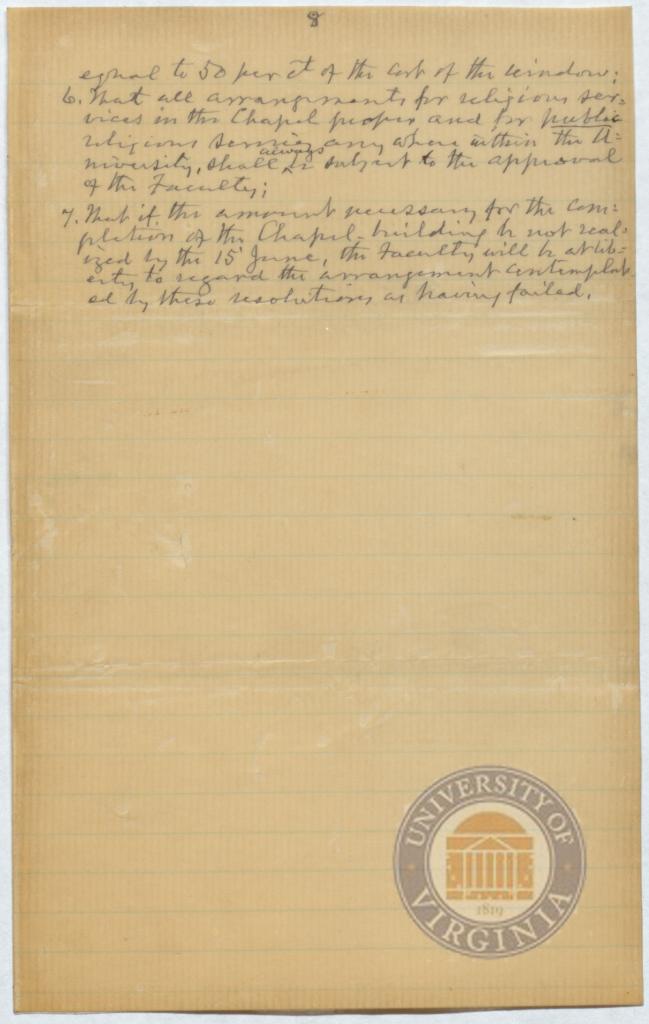 8
equal to 50 per ct of the cost of the window;
6. That all arrangements for religious ser-
vices in the Chapel proper and for public
religious services any where within the U-
niversity, shall always be subject to the approval
of the Faculty;
7. That if the amount necessary for the com-
pletion of the Chapel-building be not real-
ized by the 15 June, the Faculty will be at lib-
erty to regard the arrangement contemplat
ed by these resolutions as having failed.
UNIVERSITY OF
VIRGINIA
1819